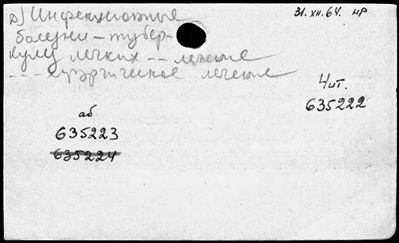 д) Инфекционные
31.XII.64. нр
болезни — тубер-
кулез легких -- лечение
- - - хирургическое лечение
Чит.
635222
аб
635223
635224